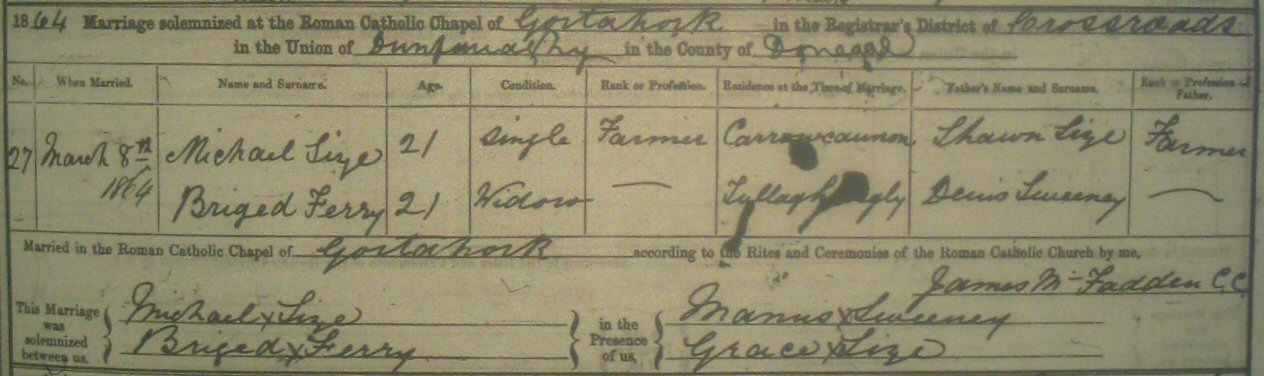 1864 Marriage solemnized at the Roman Catholic Chapel of Gortahork in the Registrar's District of Crossroads
in the Union of Dunfanaghy in the County of Donegal
No. When Married. Name and Surname. Age. Condition. Rank or Profession. Residence at the Time of Marriage. Father's Name and Surname. Rank or Profession of Father.
27 March 8th 1864 Michael Size 21 Single Farmer Carrowcannon Shawn Size Farmer
Briged Ferry 21 Widow — Denis Sweeney —
Married in the Roman Catholic Chapel of Gortahork according to the Rites and Ceremonies of the Roman Catholic Church by me,
James McFadden C.C.
This Marriage was solemnized between us, Michael x Size in the Presence of us, Manus x Sweeney
Briged x Ferry Grace x Size